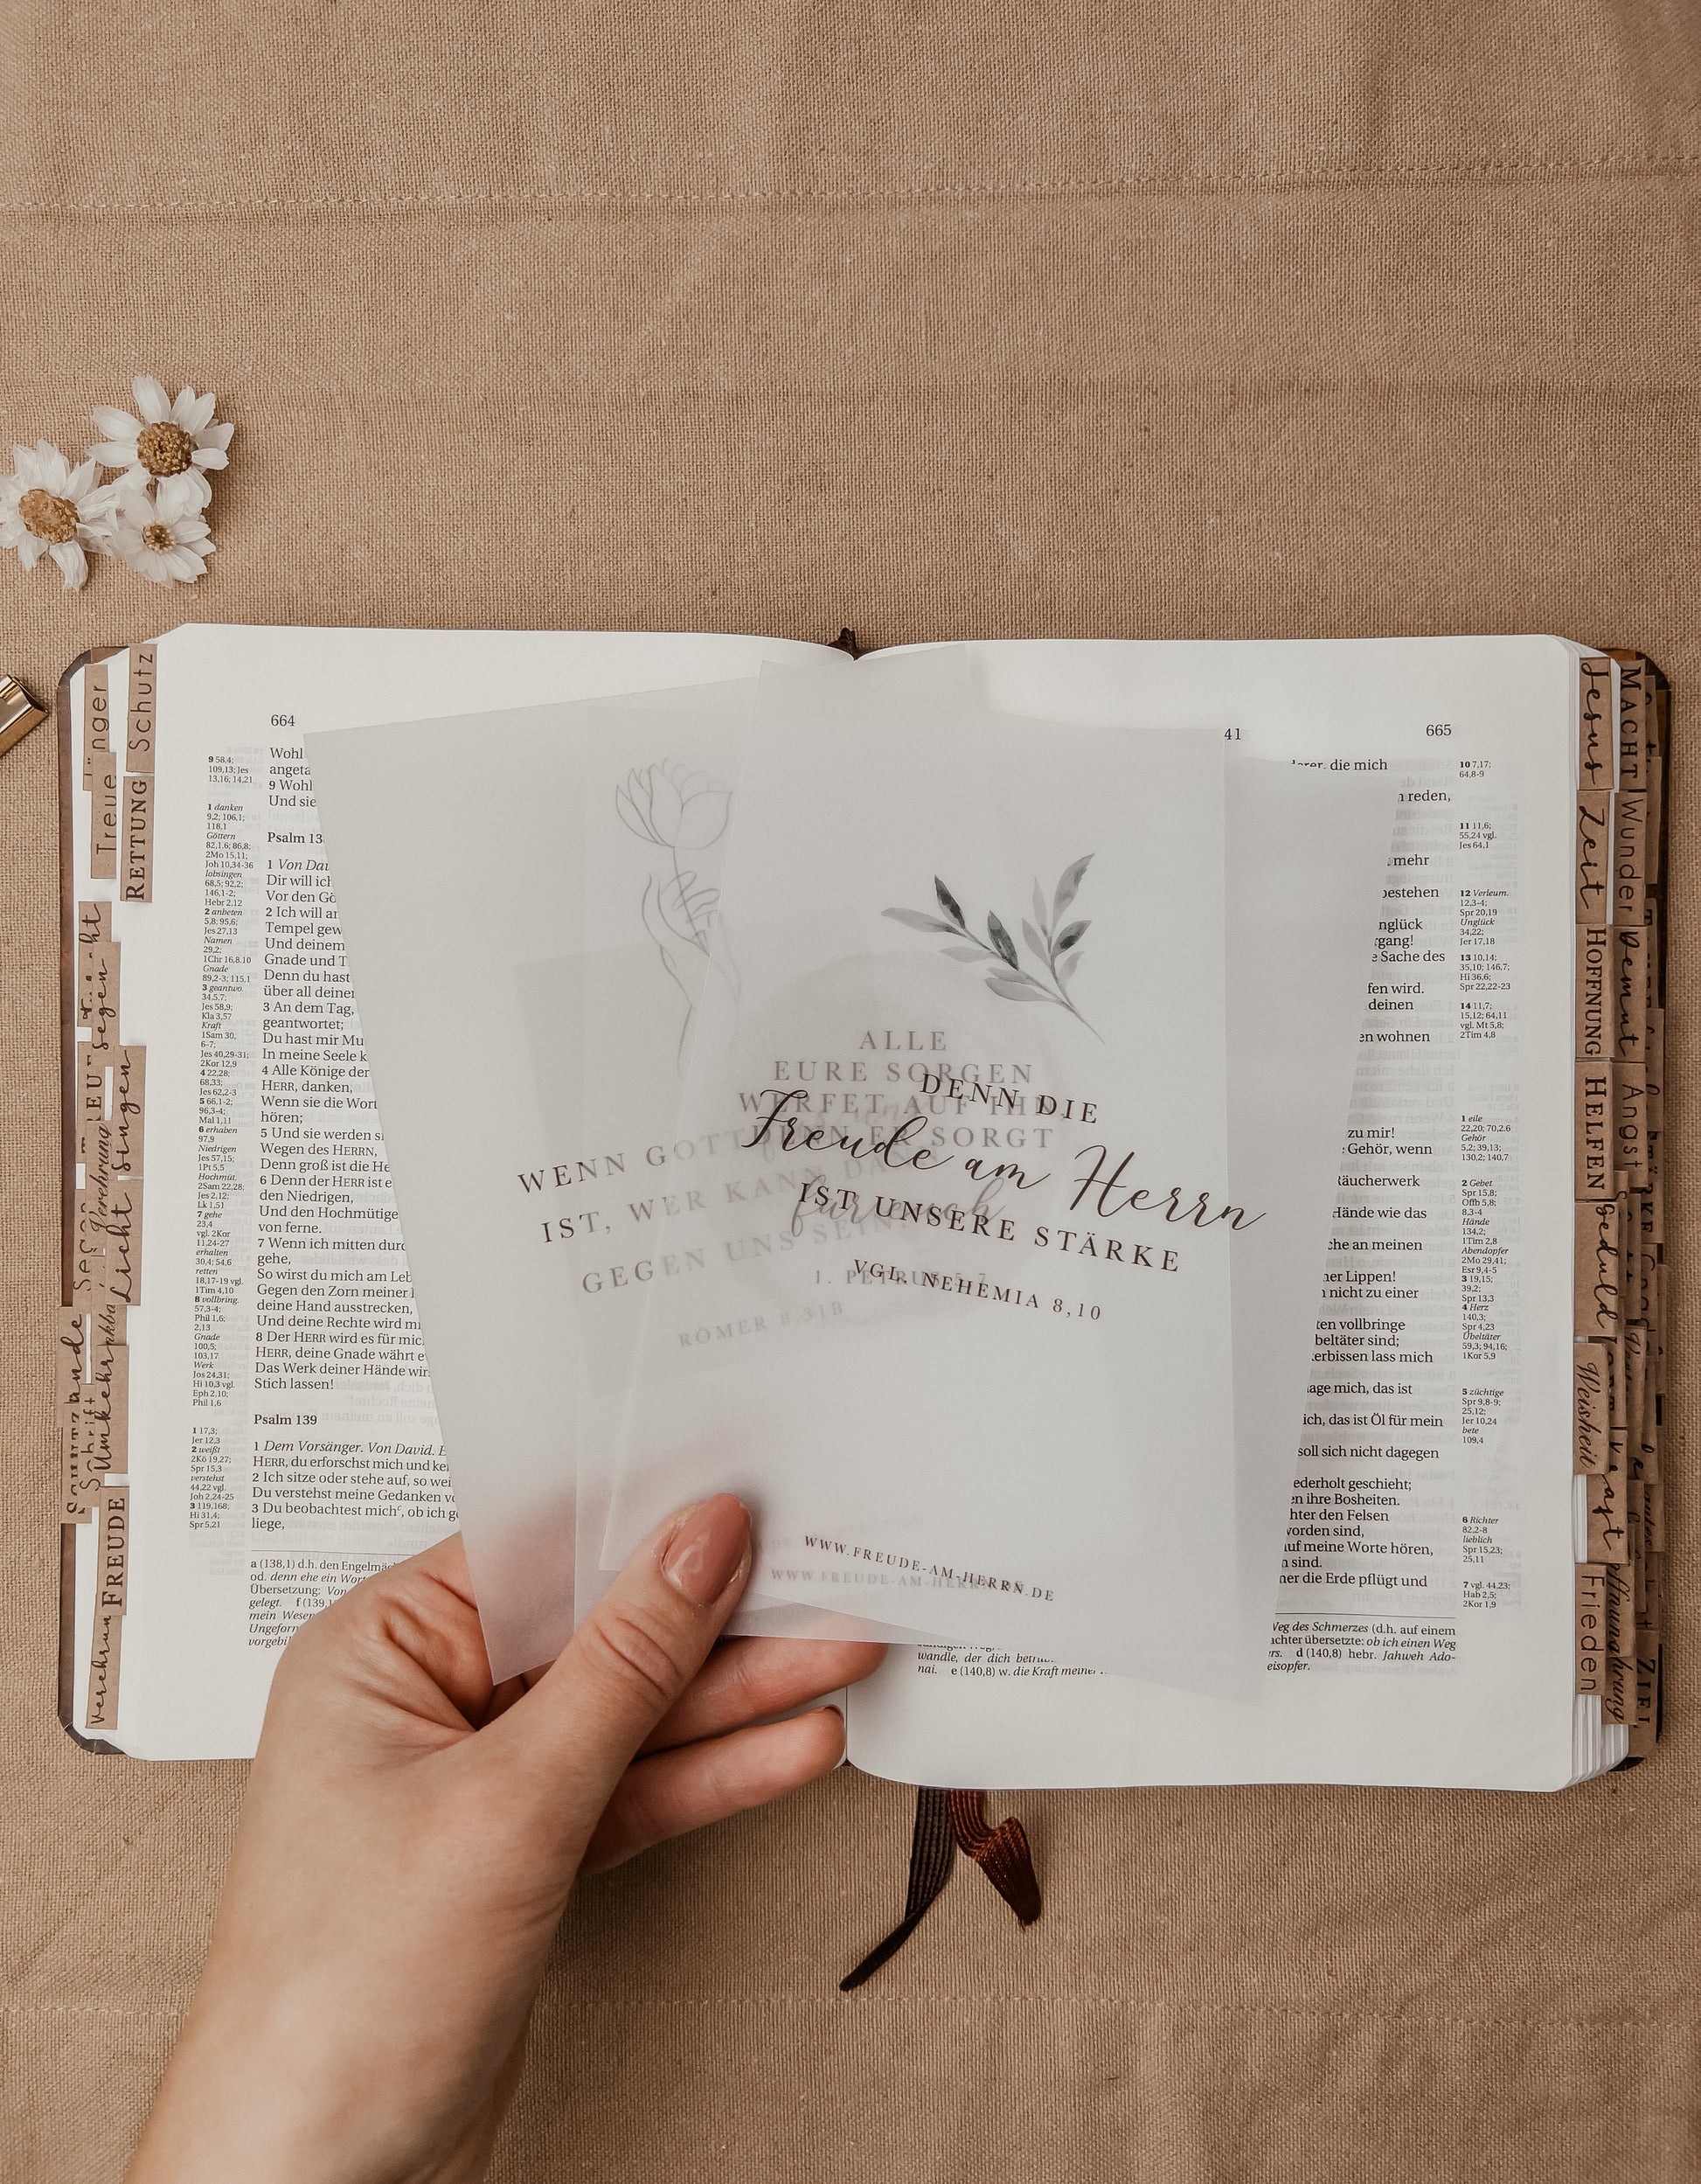 664
9 58,4;
109,13; Jes
13,16; 14,21
1 danken
9,2; 106,1;
118,1
Göttern
82,1.6; 86,8;
2Mo 15,11;
Joh 10,34-36
lobsingen
68,5; 92,2;
146,1-2;
Hebr 2,12
2 anbeten
5,8; 95,6;
Jes 27,13
Namen
29,2;
1Chr 16,8.10
Gnade
89,2-3; 115,1
3 geantwo.
34,5.7;
Jes 58,9;
Kla 3,57
Kraft
1Sam 30,
6-7;
Jes 40,29-31;
2Kor 12,9
4 22,28;
68,33;
Jes 62,2-3
5 66,1-2;
96,3-4;
Mal 1,11
6 erhaben
97,9
Niedrigen
Jes 57,15;
1Pt 5,5
Hochmüt.
2Sam 22,28;
Jes 2,12;
Lk 1,51
7 gehe
23,4
vgl. 2Kor
11,24-27
erhalten
30,4; 54,6
retten
18,17-19 vgl.
1Tim 4,10
8 vollbring.
57,3-4;
Phil 1,6;
2,13
Gnade
100,5;
103,17
Werk
Jos 24,31;
Hi 10,3 vgl.
Eph 2,10;
Phil 1,6
1 17,3;
Jer 12,3
2 weißt
2Kö 19,27;
Spr 15,3
verstehst
44,22 vgl.
Joh 2,24-25
3 119,168;
Hi 31,4;
Spr 5,21
Wohl
angeta
9 Wohl
Und sie
Psalm 13
1 Von Dav
Dir will ich
Vor den Gö
2 Ich will an
Tempel gew
Und deinem
Gnade und T
Denn du hast
über all deinen
3 An dem Tag,
geantwortet;
Du hast mir Mu
In meine Seele k
4 Alle Könige der
HERR, danken,
Wenn sie die Wort
hören;
5 Und sie werden si
Wegen des HERRN,
Denn groß ist die He
6 Denn der HERR ist e
den Niedrigen,
Und den Hochmütige
von ferne.
7 Wenn ich mitten durc
gehe,
So wirst du mich am Leb
Gegen den Zorn meiner
deine Hand ausstrecken,
Und deine Rechte wird mi
8 Der HERR wird es für mic
HERR, deine Gnade währt e
Das Werk deiner Hände wir
Stich lassen!
Psalm 139
1 Dem Vorsänger. Von David. E
HERR, du erforschst mich und ke
2 Ich sitze oder stehe auf, so wei
Du verstehst meine Gedanken vo
3 Du beobachtest michc, ob ich g
liege,
a (138,1) d.h. den Engelmäc
od. denn ehe ein Wort
Übersetzung: Von
gelegt. f (139,1
mein Wesen
Ungeform
vorgebil
ALLE
EURE SORGEN
WERFET AUF IHN
DENN ER SORGT
für euch
1. PETRUS 5,7
WENN GOTT
IST, WER KANN DA
GEGEN UNS SEIN
RÖMER 8,31B
DENN DIE
Freude am Herrn
IST UNSERE STÄRKE
VGL. NEHEMIA 8,10
WWW.FREUDE-AM-HERRN.DE
WWW.FREUDE-AM-HERRN.DE
41
665
die mich
reden,
mehr
bestehen
nglück
gang!
e Sache des
fen wird.
deinen
en wohnen
zu mir!
Gehör, wenn
Räucherwerk
Hände wie das
che an meinen
ner Lippen!
nicht zu einer
ten vollbringe
beltäter sind;
erbissen lass mich
age mich, das ist
ich, das ist Öl für mein
soll sich nicht dagegen
ederholt geschieht;
en ihre Bosheiten.
hter den Felsen
worden sind,
auf meine Worte hören,
n sind.
ner die Erde pflügt und
Weg des Schmerzes (d.h. auf einem
achter übersetzte: ob ich einen Weg
rs. d (140,8) hebr. Jahweh Ado-
eisopfer.
wandle, der dich betrüb
nai. e (140,8) w. die Kraft meiner
10 7,17;
64,8-9
11 11,6;
55,24 vgl.
Jes 64,1
12 Verleum.
12,3-4;
Spr 20,19
Unglück
34,22;
Jer 17,18
13 10,14;
35,10; 146,7;
Hi 36,6;
Spr 22,22-23
14 11,7;
15,12; 64,11
vgl. Mt 5,8;
2Tim 4,8
1 eile
22,20; 70,2.6
Gehör
5,2; 39,13;
130,2; 140,7
2 Gebet
Spr 15,8;
Offb 5,8;
8,3-4
Hände
134,2;
1Tim 2,8
Abendopfer
2Mo 29,41;
Esr 9,4-5
3 19,15;
39,2;
Spr 13,3
4 Herz
140,3;
Spr 4,23
Übeltäter
59,3; 94,16;
1Kor 5,9
5 züchtige
Spr 9,8-9;
25,12;
Jer 10,24
bete
109,4
6 Richter
82,2-8
lieblich
Spr 15,23;
25,11
7 vgl. 44,23;
Hab 2,5;
2Kor 1,9
Schutz
Jünger
Treue
RETTUNG
segen
singen
Licht
Verehrung
Umkehr
Schrift
FREUDE
Jesus
MACHT
Zeit
Wunder
HOFFNUNG
Demut
HELFEN
Angst
Geduld
Weisheit
Frieden
ZIEL